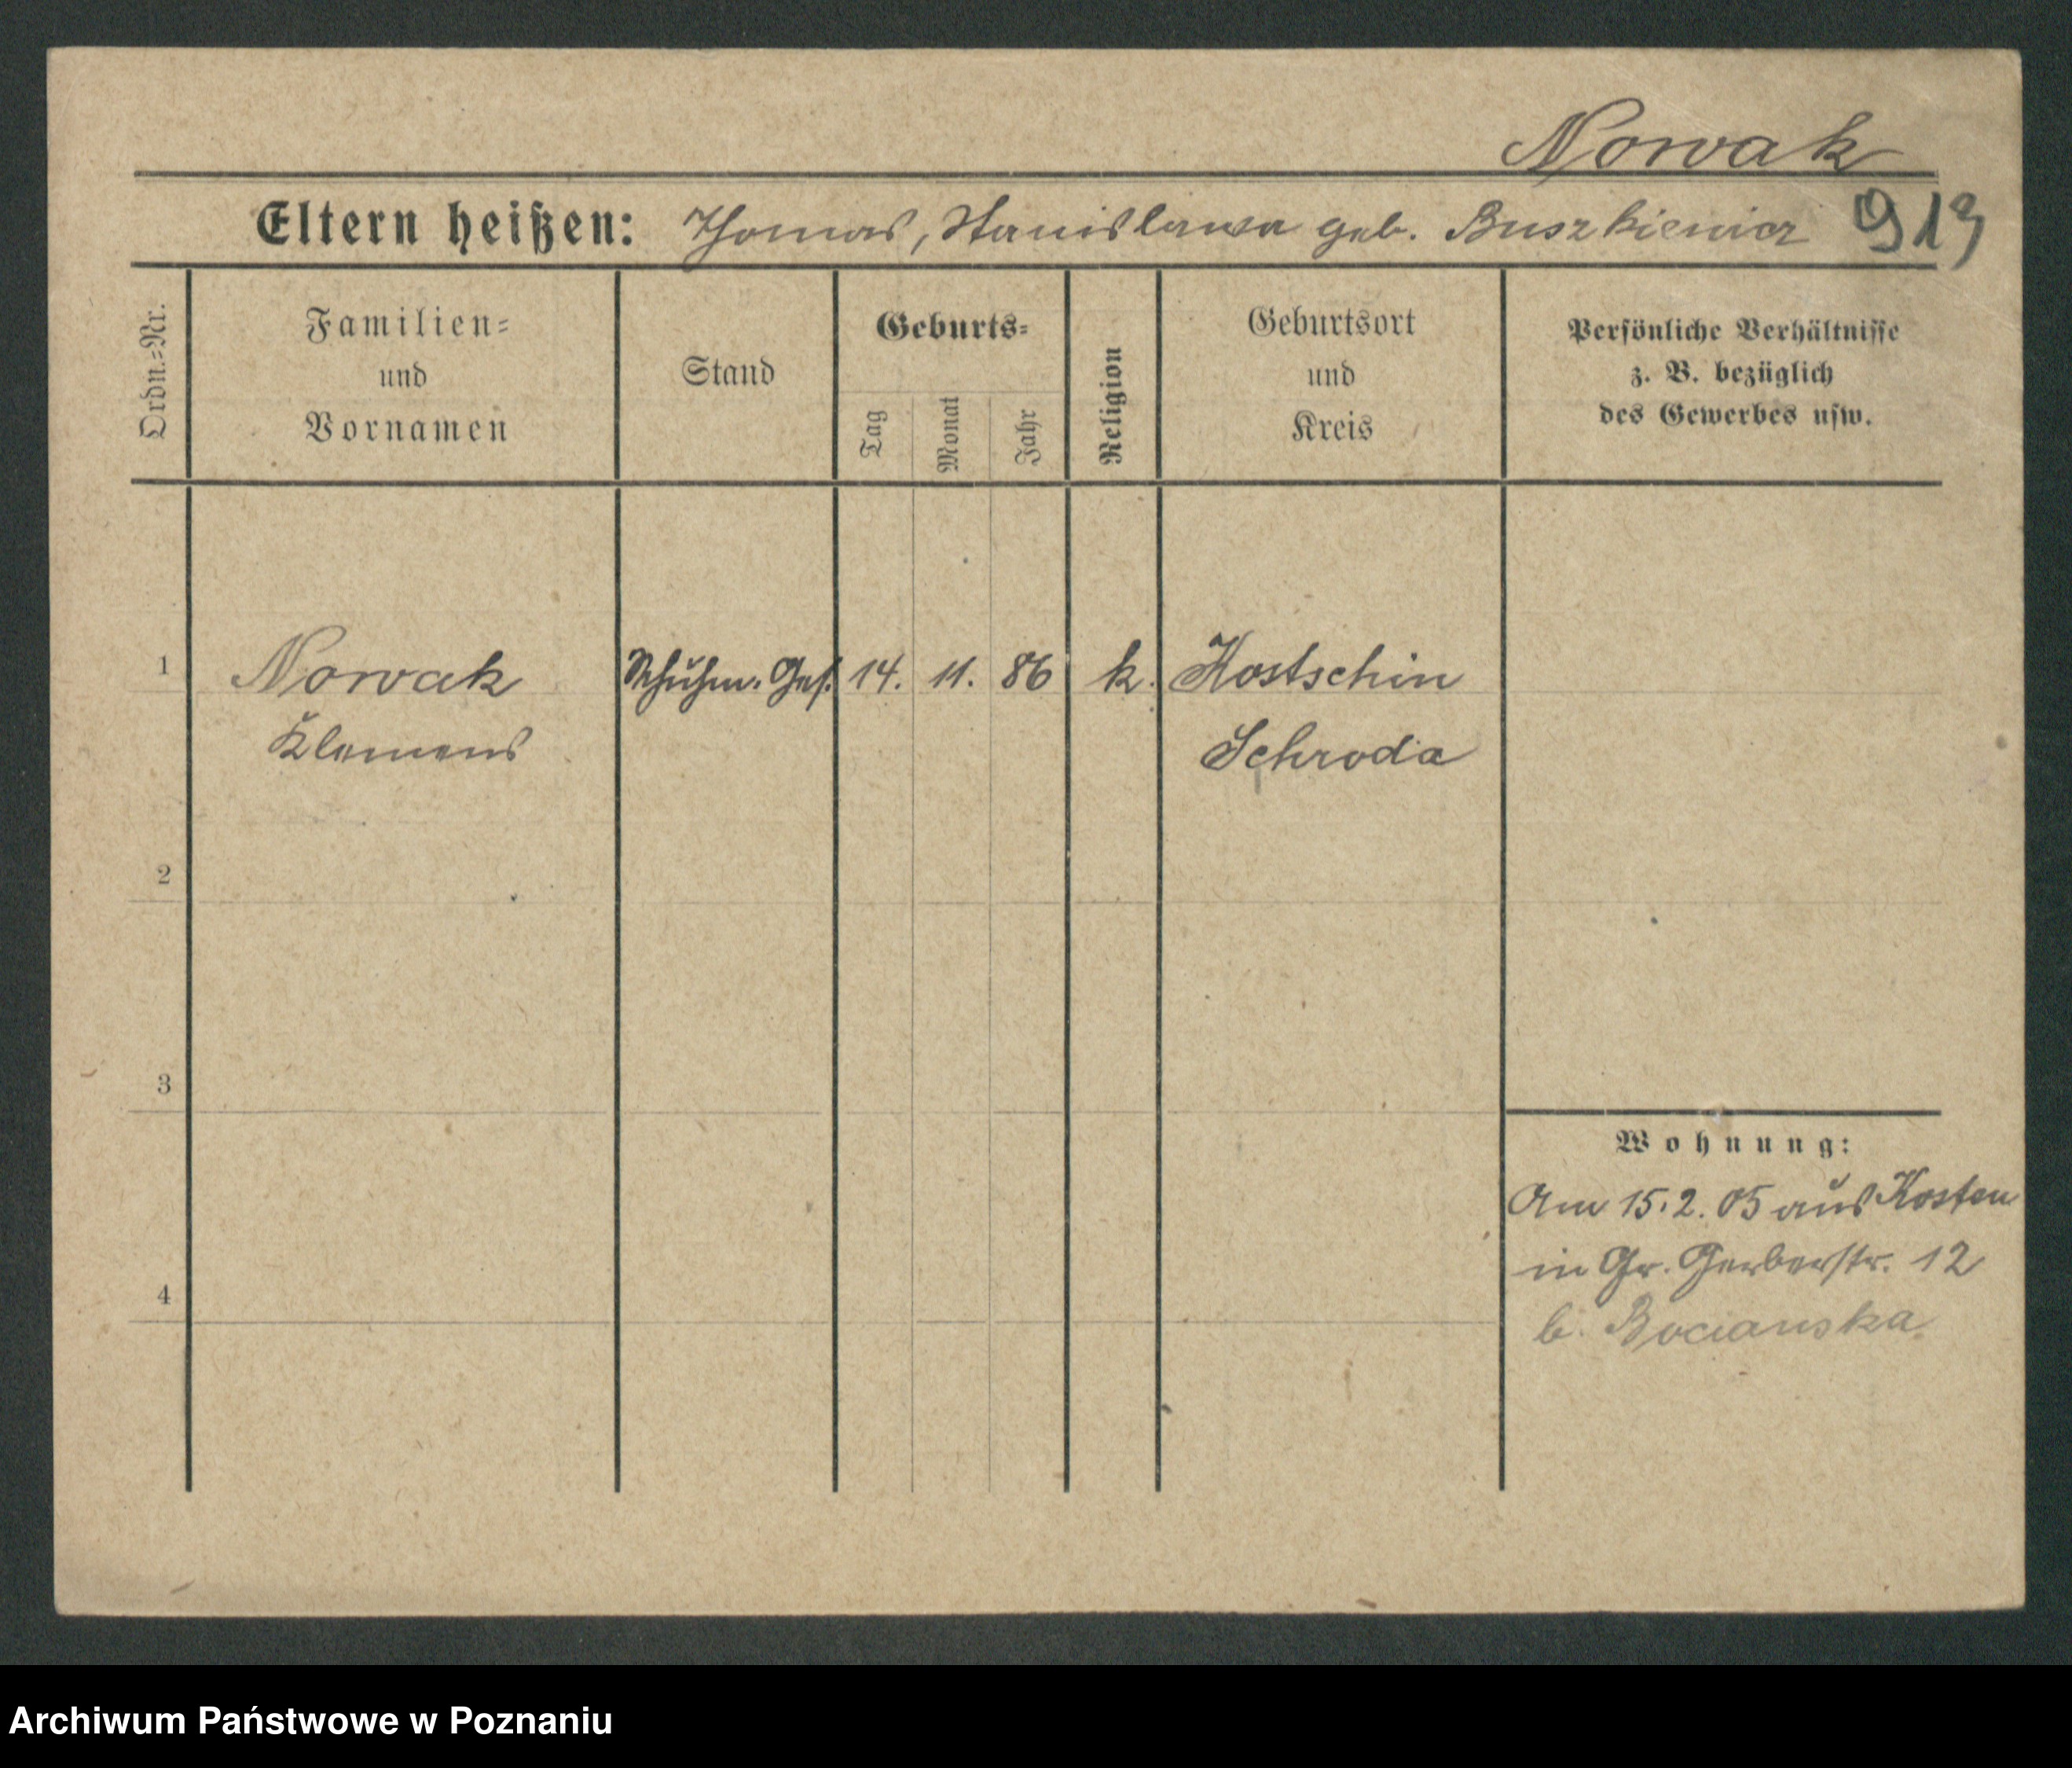 Nowak
Eltern heißen: Thomas, Stanislawa geb. Buszkiewicz 913
Ordn.=Nr.
Familien=
und
Vornamen
Stand
Geburts=
Tag
Monat
Jahr
Religion
Geburtsort
und
Kreis
Persönliche Verhältnisse
z. B. bezüglich
des Gewerbes usw.
1 Nowak Schuhm. Ges. 14. 11. 86 k. Kostschin
Klemens Schroda
2
3
4
Wohnung:
Am 15.2.05 aus Kosten
in Gr. Gerberstr. 12
b. Bocianska
Archiwum Państwowe w Poznaniu